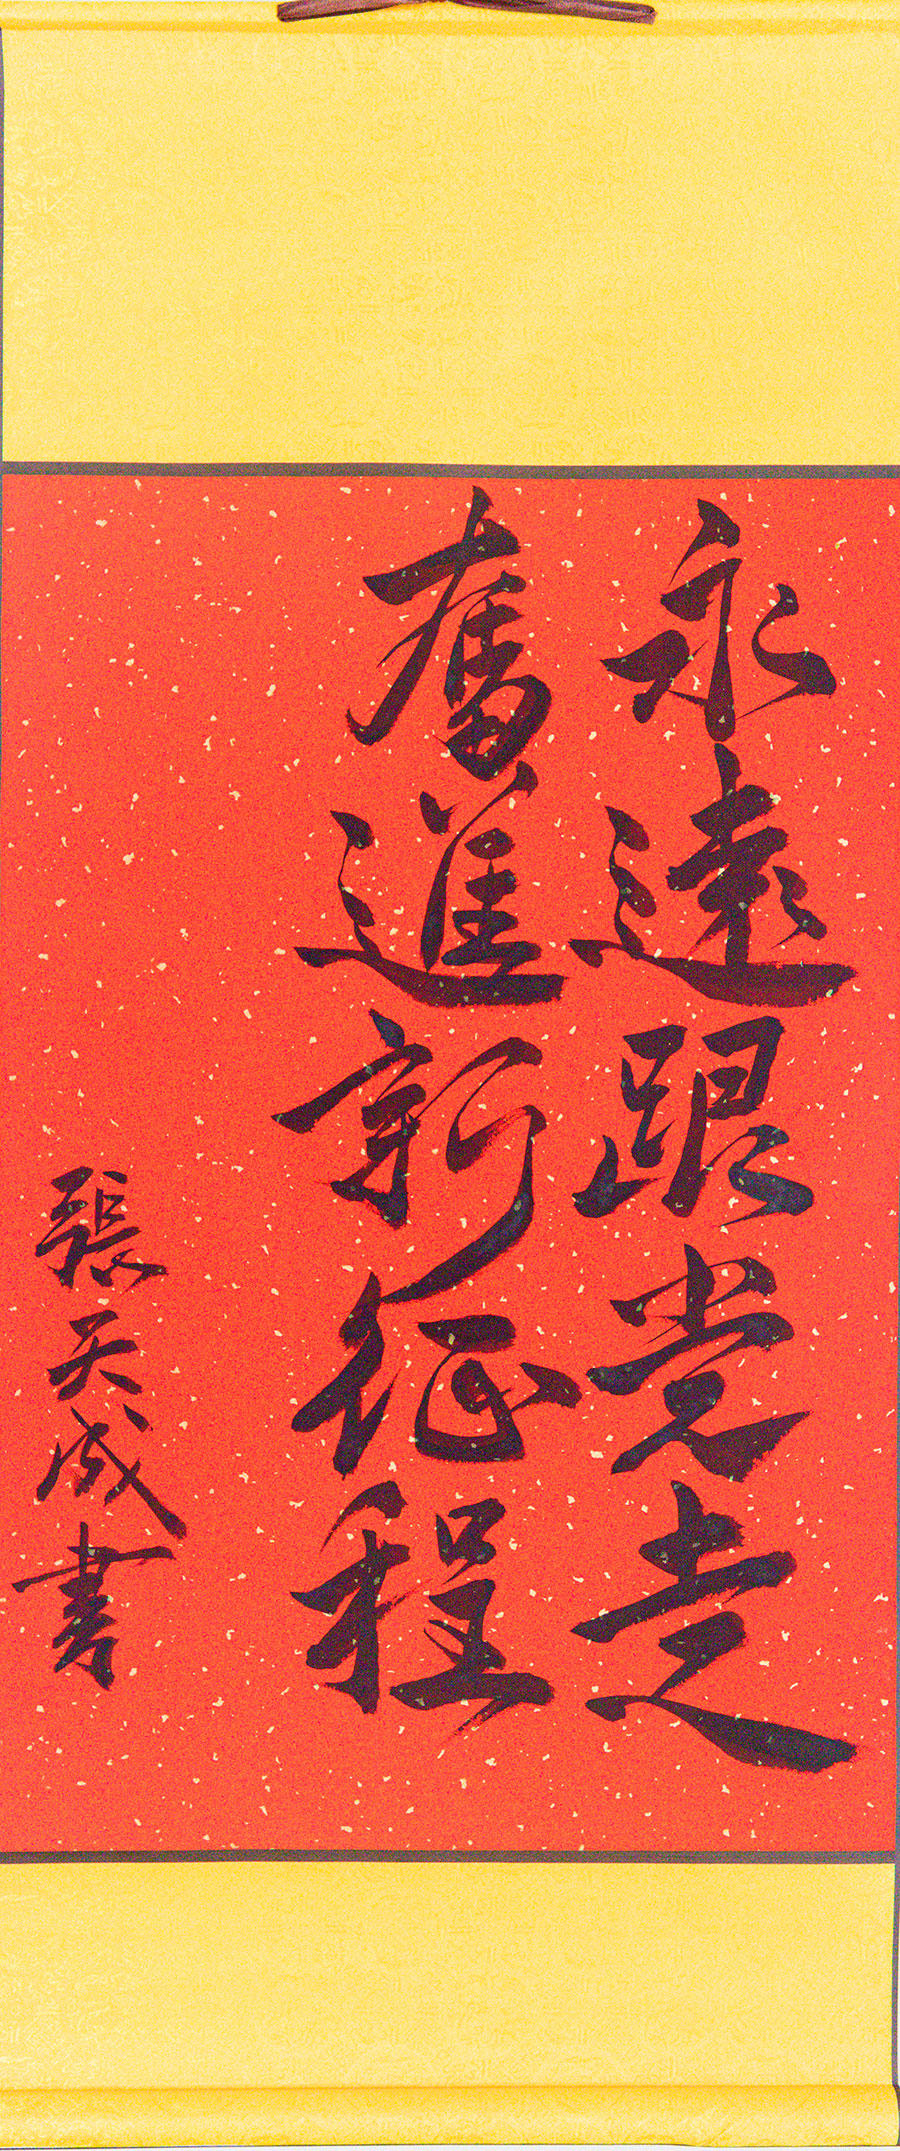 永遠跟党走
奮進新征程
張天成書